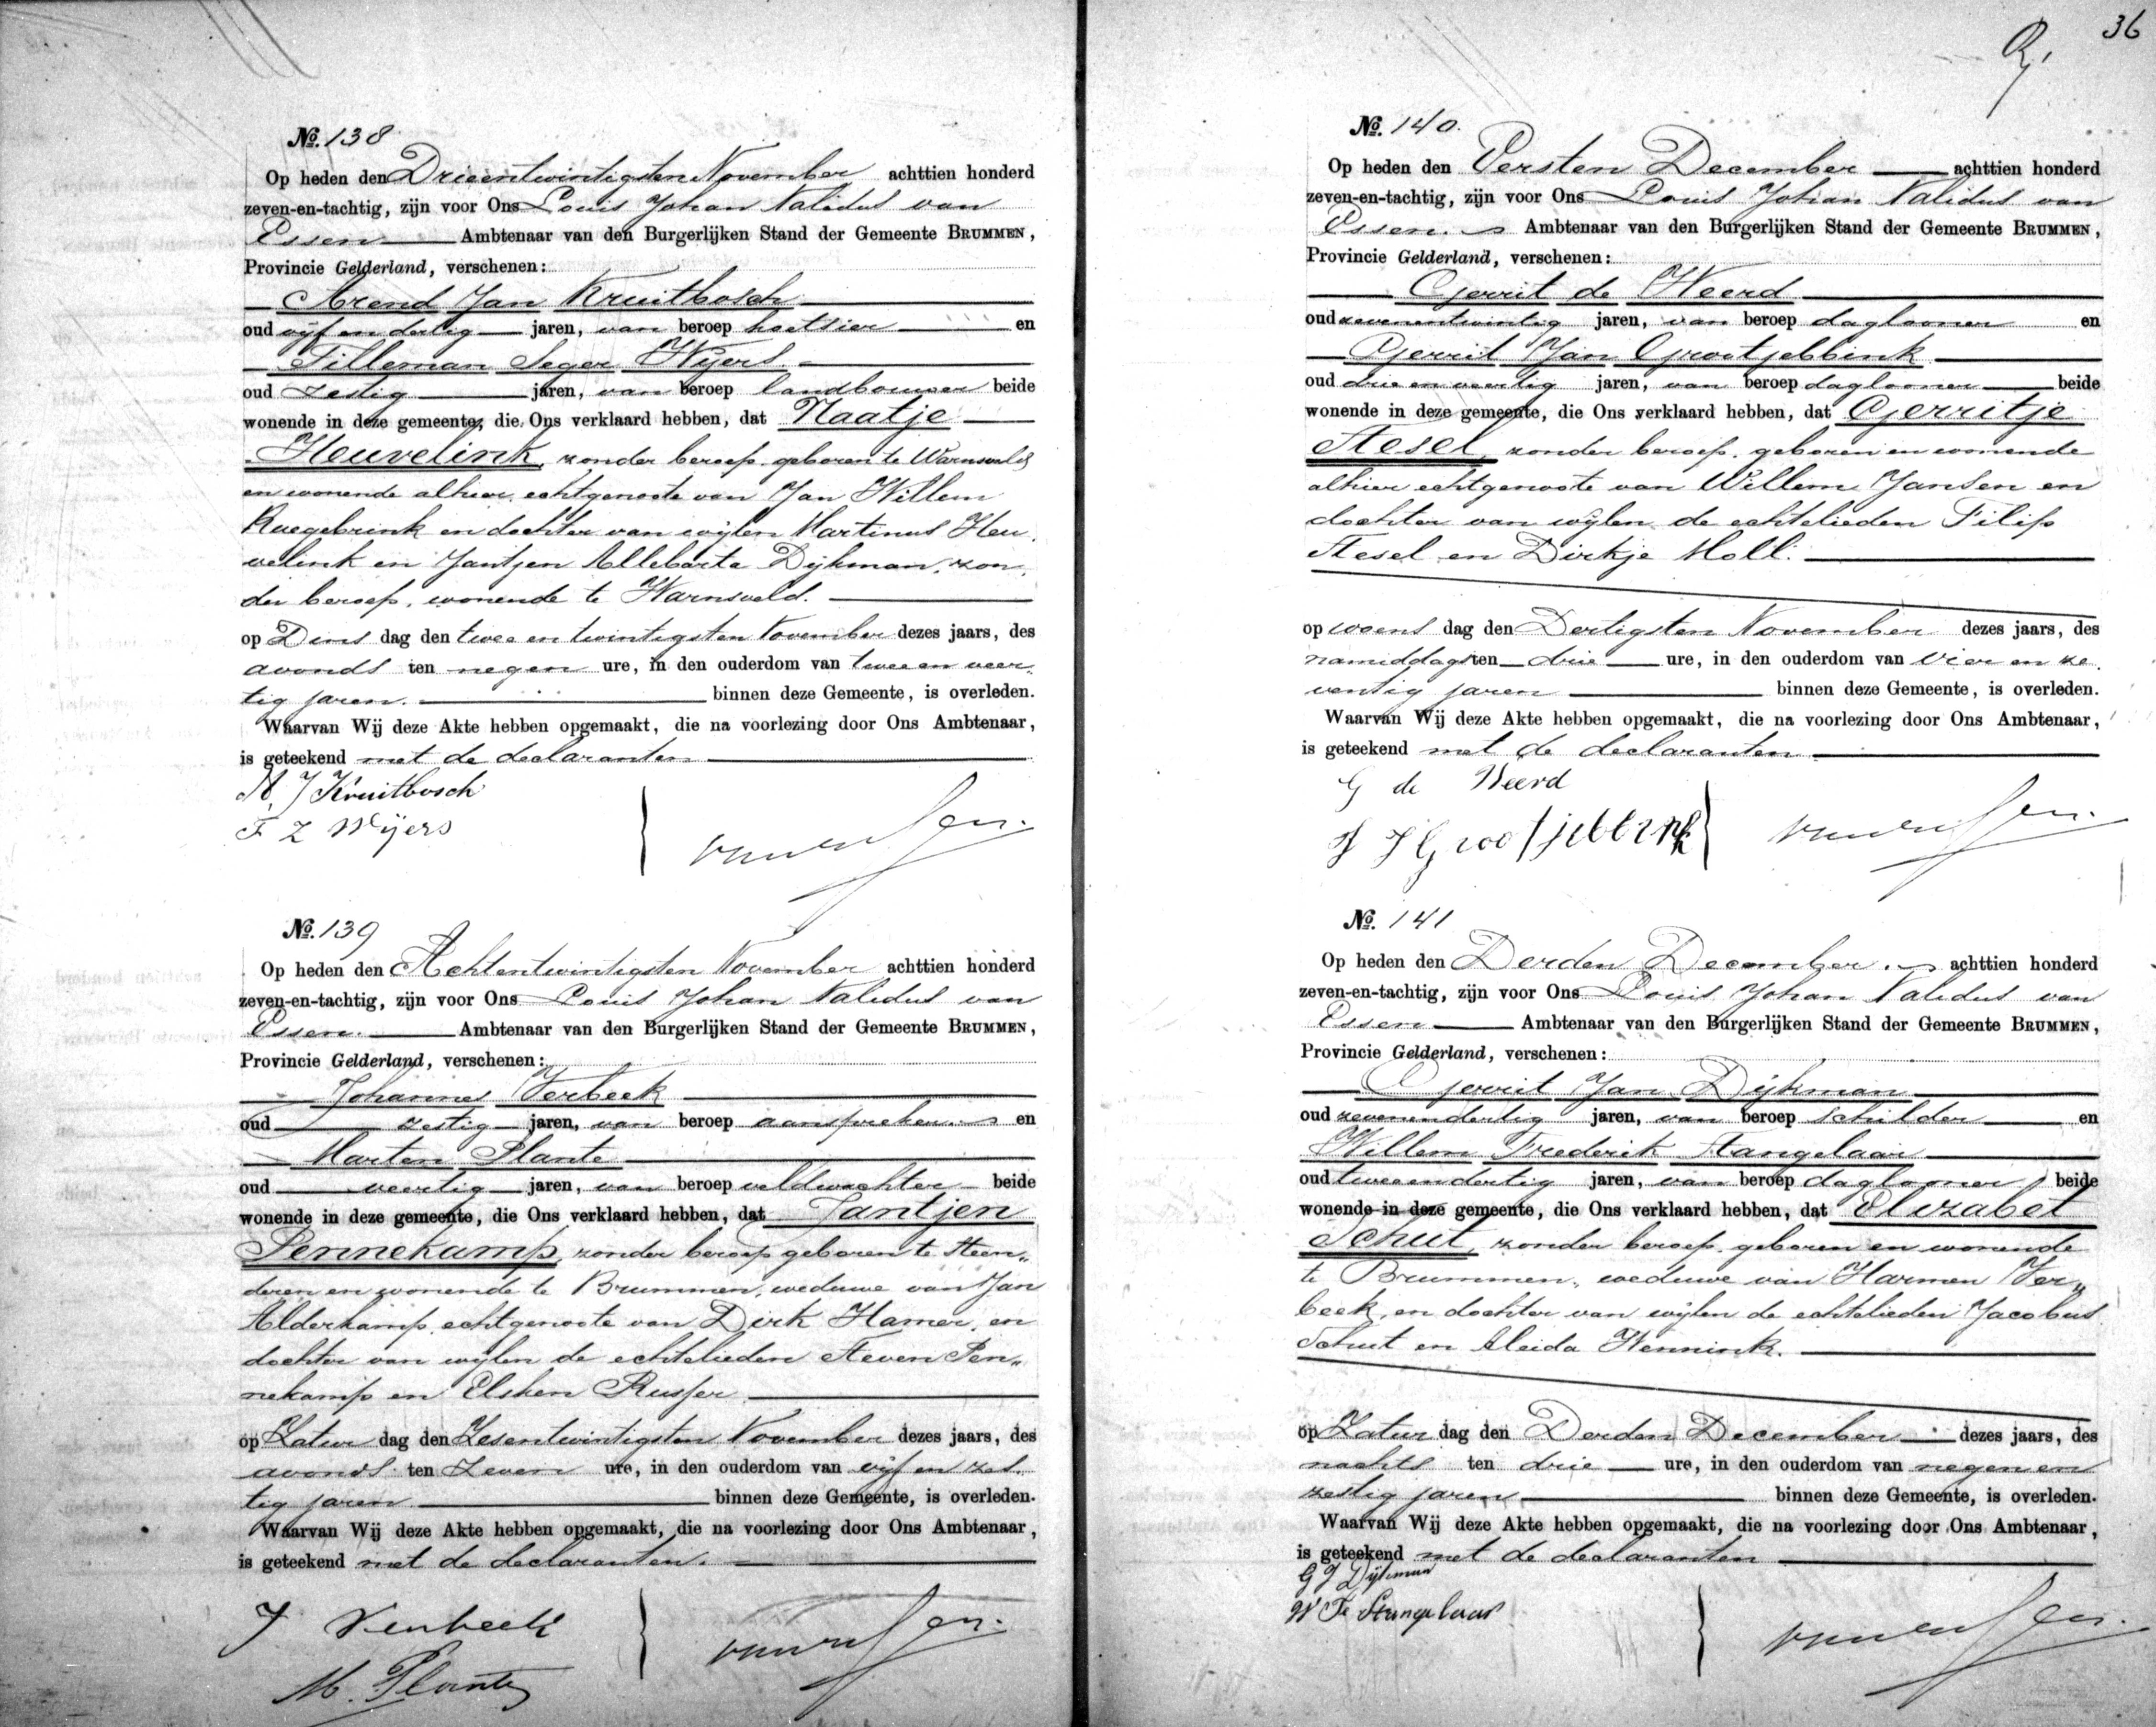 36
No. 138
Op heden den Drieentwintigsten November achttien honderd
zeven-en-tachtig, zijn voor Ons Louis Johan Validus van
Essen Ambtenaar van den Burgerlijken Stand der Gemeente BRUMMEN,
Provincie Gelderland, verschenen:
Arend Jan Kruitbosch
oud vijf en dertig jaren, van beroep koetsier en
Tilleman Seger Wijers
oud zestig jaren, van beroep landbouwer beide
wonende in deze gemeente, die Ons verklaard hebben, dat Naatje
Heuvelink, zonder beroep, geboren te Warnsveld
en wonende alhier, echtgenoote van Jan Willem
Ruegebrink en dochter van wijlen Martinus Heu,
velink en Jantjen Alleberta Dijkman, zon,
der beroep, wonende te Warnsveld.
op Dins dag den twee en twintigsten November dezes jaars, des
avonds ten negen ure, in den ouderdom van twee en veer,
tig jaren. binnen deze Gemeente, is overleden.
Waarvan Wij deze Akte hebben opgemaakt, die na voorlezing door Ons Ambtenaar,
is geteekend met de declaranten
A. J Kruitbosch
T Z Wijers
van Essen.
No. 139
Op heden den Achtentwintigsten November achttien honderd
zeven-en-tachtig, zijn voor Ons Louis Johan Validus van
Essen. Ambtenaar van den Burgerlijken Stand der Gemeente BRUMMEN,
Provincie Gelderland, verschenen:
Johannes Verbeek
oud zestig jaren, van beroep aanspreker en
Marten Plante
oud veertig jaren, van beroep veldwachter beide
wonende in deze gemeente, die Ons verklaard hebben, dat Jantjen
Pennekamp, zonder beroep geboren te Steen,,
deren en wonende te Brummen, weduwe van Jan
Alderkamp, echtgenoote van Dirk Hamer, en
dochter van wijlen de echtelieden Steven Pen,,
nekamp en Elsken Russer
op Zatur dag den Zesentwintigsten November dezes jaars, des
avonds ten zeven ure, in den ouderdom van vijf en zes,
tig jaren binnen deze Gemeente, is overleden.
Waarvan Wij deze Akte hebben opgemaakt, die na voorlezing door Ons Ambtenaar,
is geteekend met de declaranten.
J Verbeek
M. Plante
van Essen.
No. 140.
Op heden den Eersten December achttien honderd
zeven-en-tachtig, zijn voor Ons Louis Johan Validus van
Essen. Ambtenaar van den Burgerlijken Stand der Gemeente BRUMMEN,
Provincie Gelderland, verschenen:
Gerrit de Weerd
oud zevenentwintig jaren, van beroep daglooner en
Gerrit Jan Grootjebbink
oud drie en veertig jaren, van beroep daglooner beide
wonende in deze gemeente, die Ons verklaard hebben, dat Gerritje
Stesel, zonder beroep, geboren en wonende
alhier echtgenoote van Willem Jansen en
dochter van wijlen de echtelieden Filip
Stesel en Dirkje Moll.
op woens dag den Dertigsten November dezes jaars, des
namiddags ten drie ure, in den ouderdom van vier en ze,
ventig jaren binnen deze Gemeente, is overleden.
Waarvan Wij deze Akte hebben opgemaakt, die na voorlezing door Ons Ambtenaar,
is geteekend met de declaranten
G de Weerd
G J Grootjebbink
van Essen.
No. 141
Op heden den Derden December. achttien honderd
zeven-en-tachtig, zijn voor Ons Louis Johan Validus van
Essen Ambtenaar van den Burgerlijken Stand der Gemeente BRUMMEN,
Provincie Gelderland, verschenen:
Gerrit Jan Dijkman
oud zevenendertig jaren, van beroep schilder en
Willem Frederik Stangelaar
oud tweeendertig jaren, van beroep daglooner, beide
wonende in deze gemeente, die Ons verklaard hebben, dat Elizabet
Schut, zonder beroep, geboren en wonende
te Brummen, weduwe van Harmen Ver,,
beek, en dochter van wijlen de echtelieden Jacobus
Schut en Aleida Wennink.
op Zatur dag den Derden December dezes jaars, des
nachts ten drie ure, in den ouderdom van negen en
zestig jaren binnen deze Gemeente, is overleden.
Waarvan Wij deze Akte hebben opgemaakt, die na voorlezing door Ons Ambtenaar,
is geteekend met de declaranten
G J Dijkman
W F Stangelaar
van Essen.